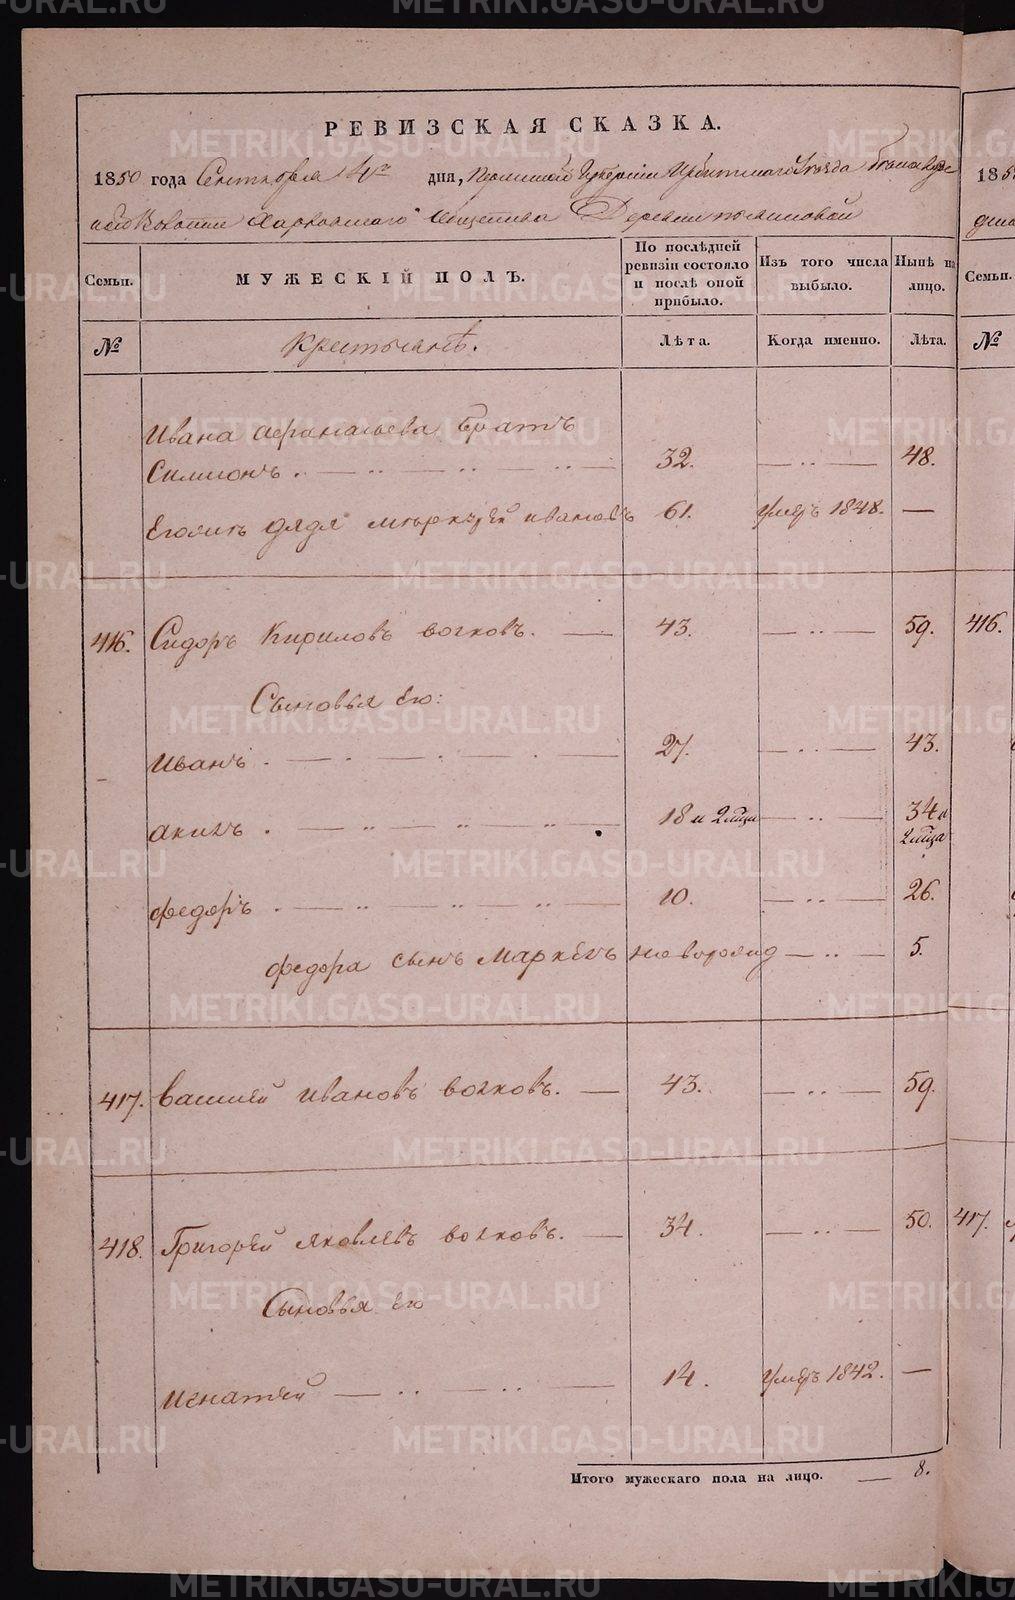 РЕВИЗСКАЯ СКАЗКА.
1850 года Сентября 4го дня, Пермской Губернии Ирбитского Уезда
Волости Харловского Общества Деревни
Семьи. МУЖЕСКІЙ ПОЛЪ. По послѣдней ревизіи состояло и послѣ оной прибыло. Изъ того числа выбыло. Нынѣ на лицо.
№ Крестьянѣ. Лѣта. Когда именно. Лѣта.
Ивана Афанасьева братъ
Симионъ. 32. 48.
Ихъ дядя Иванов 61. умеръ 1848. —
416. Сидоръ Кириловъ волковъ. — 43. 59.
Сыновья Его:
Иванъ. 27. 43.
Акимъ. 18 и 2 мѣца 34 и 2 мѣца
федоръ 10. 26.
федора сынъ Маркелъ новорожд 5.
417. Василей Ивановъ волковъ. — 43. 59.
418. Григорей Яковлевъ волковъ. — 34. 50.
Сыновья Его
Игнатей 14. умеръ 1842. —
Итого мужескаго пола на лицо. — 8.
185
Семьи.
№
416.
417.
METRIKI.GASO-URAL.RU